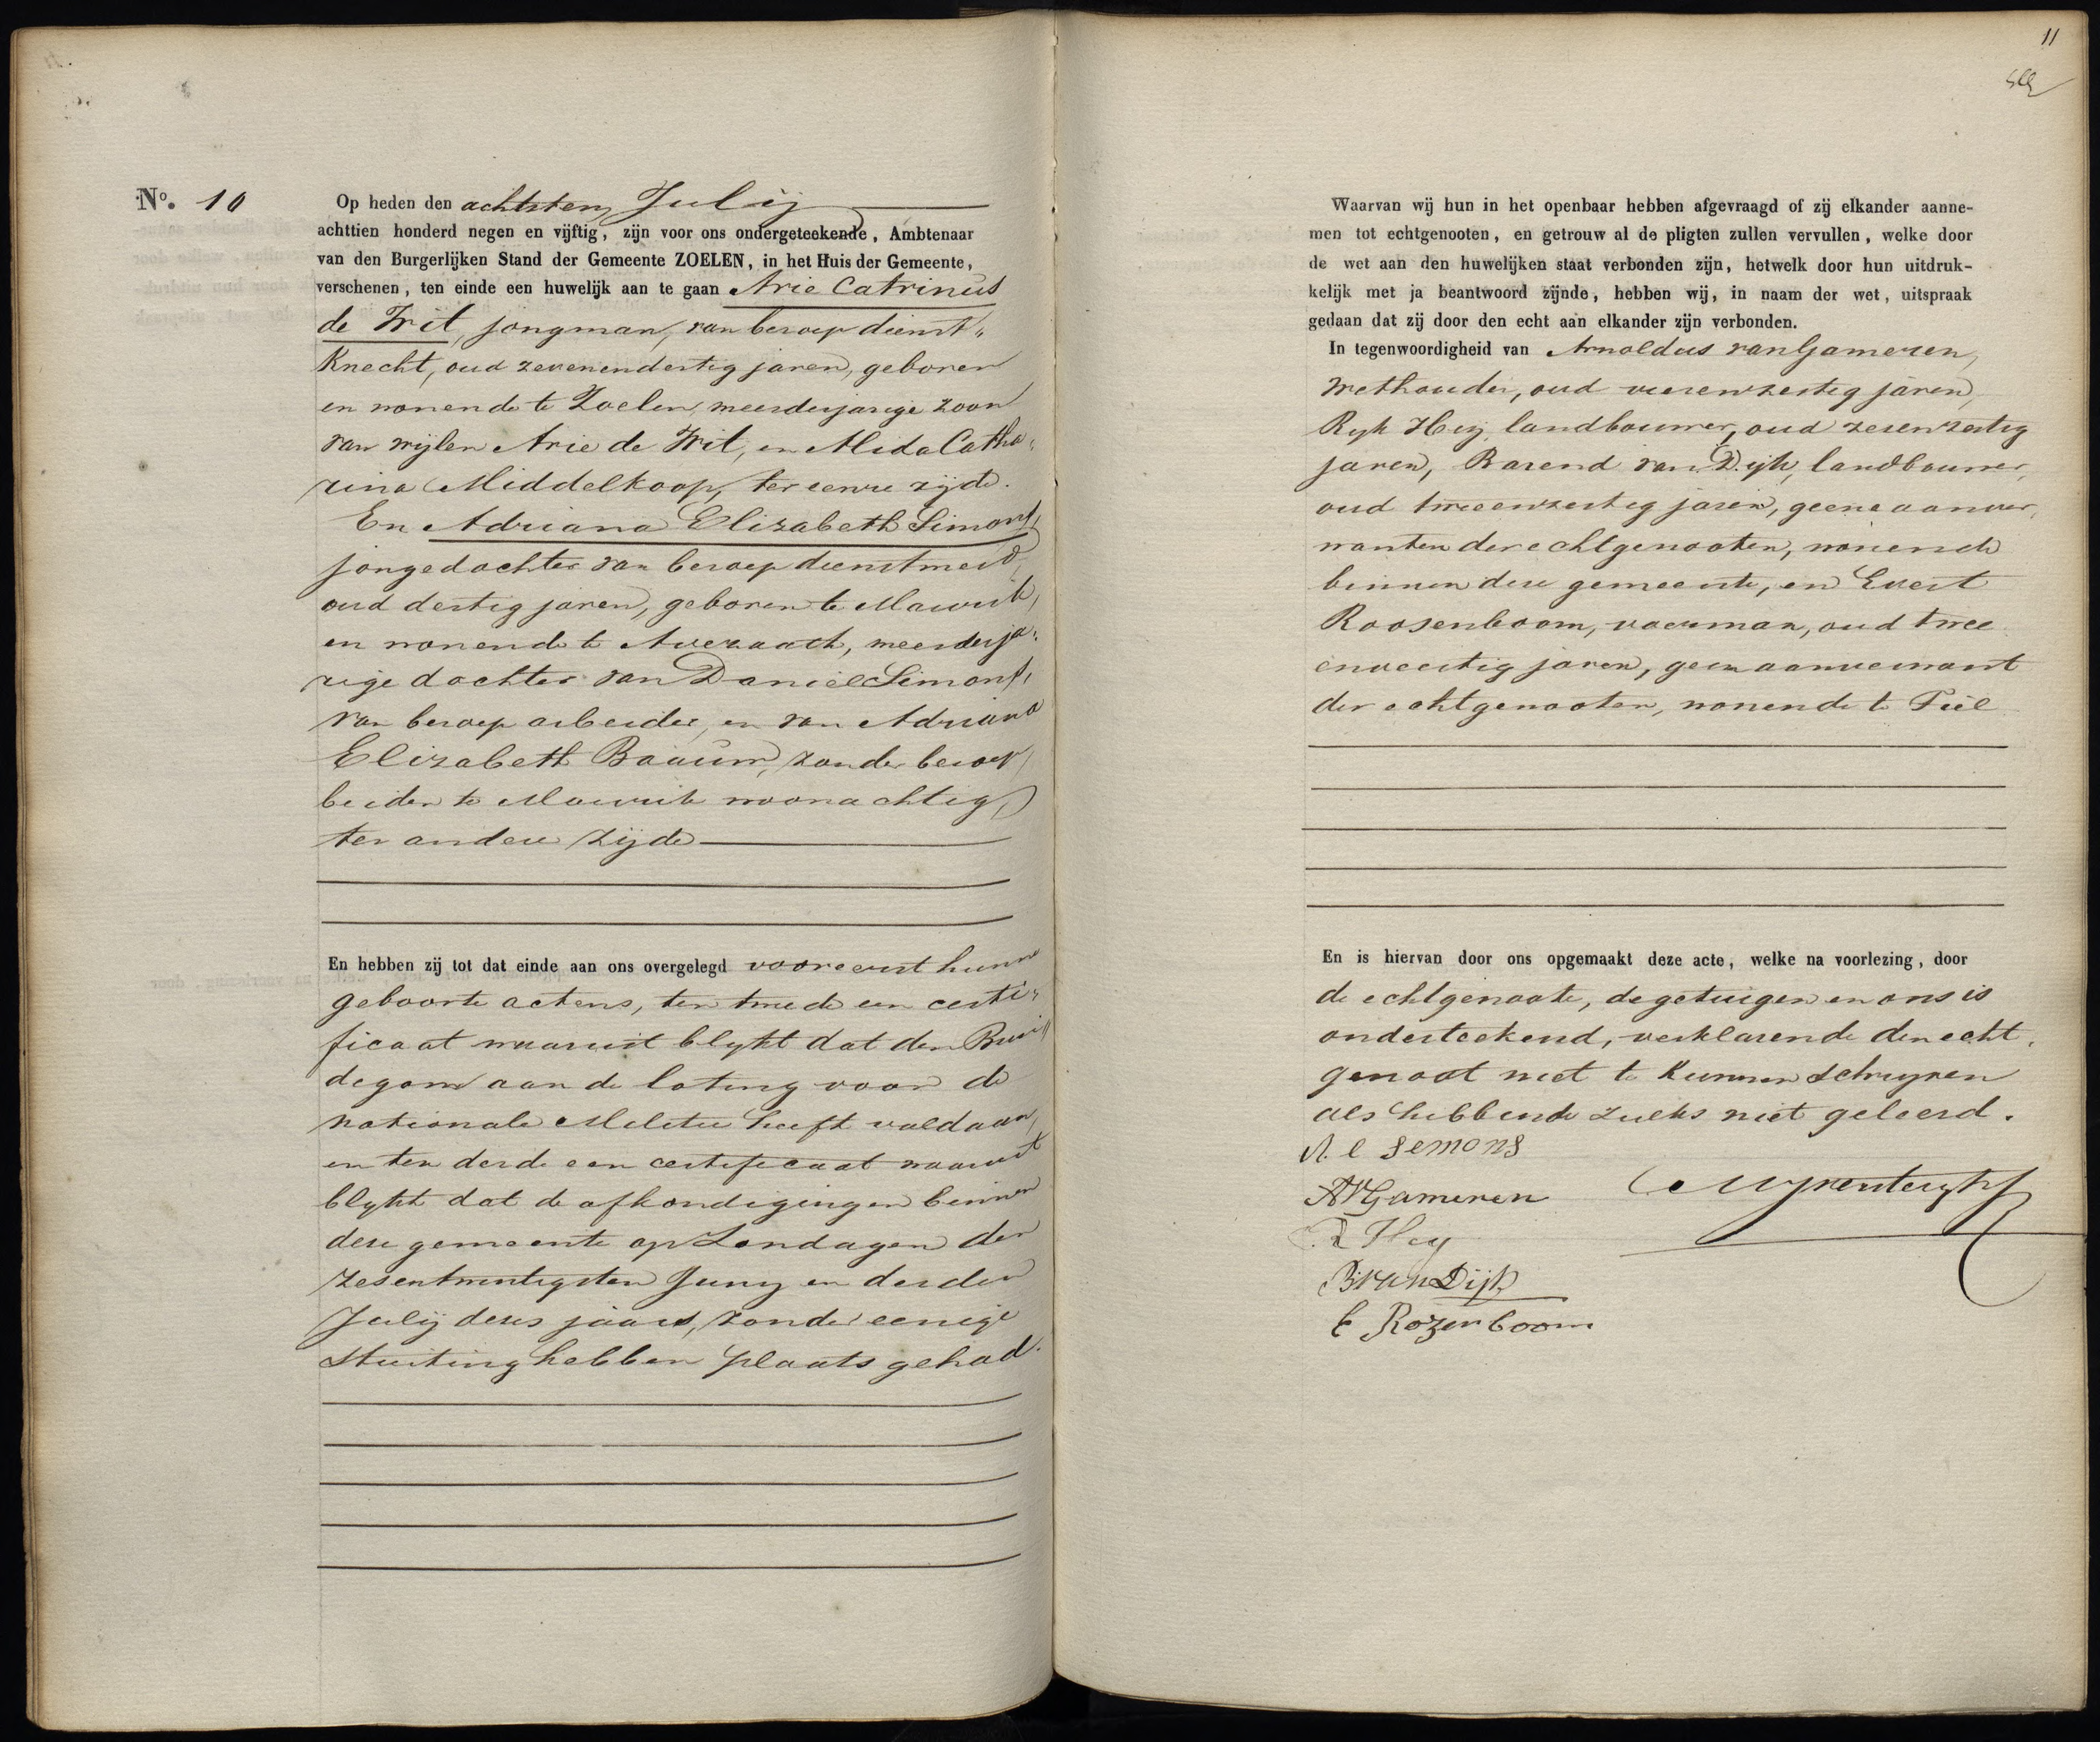 No. 10
Op heden den achtsten Julij
achttien honderd negen en vijftig, zijn voor ons ondergeteekende, Ambtenaar
van den Burgerlijken Stand der Gemeente ZOELEN, in het Huis der Gemeente,
verschenen, ten einde een huwelijk aan te gaan Arie Catrinus
de Wit, jongman, van beroep dienst„
Knecht, oud zevenendertig jaren, geboren
en wonende te Zoelen, meerderjarige zoon
van wijlen Arie de Wit, en Alida Catha„
rina Middelkoop, ter eenre zijde.
En Adriana Elizabeth Simons,
jongedochter van beroep dienstmeid,
oud dertig jaren, geboren te Maurik,
en wonende te Avezaath, meerderja„
rige dochter van Daniel Simons,
van beroep arbeider, en van Adriana
Elizabeth Baauw, zonder beroep,
beiden te Maurik woonachtig,
ter andere zijde
En hebben zij tot dat einde aan ons overgelegd vooreerst hunne
geboorte actens, ten tweede een certi„
ficaat waaruit blykt dat den Brui„
degom aan de loting voor de
nationale Militie heeft voldaan,
en ten derde een certificaat waaruit
blykt dat de afkondigingen binnen
deze gemeente op Zondagen den
zesentwintigsten Juny en derden
Julij dezes jaars, zonder eenige
stuiting hebben plaats gehad.
11
Waarvan wij hun in het openbaar hebben afgevraagd of zij elkander aanne-
men tot echtgenooten, en getrouw al de pligten zullen vervullen, welke door
de wet aan den huwelijken staat verbonden zijn, hetwelk door hun uitdruk-
kelijk met ja beantwoord zijnde, hebben wij, in naam der wet, uitspraak
gedaan dat zij door den echt aan elkander zijn verbonden.
In tegenwoordigheid van Arnoldus van Gameren,
Wethouder, oud vierenzestig jaren,
Ryk Heij, landbouwer, oud zesenzestig
jaren, Barend van Dyk, landbouwer,
oud tweeenzestig jaren, geene aanver„
wanten der echtgenooten, wonende
binnen deze gemeente, en Evert
Roosenboom, voerman, oud twee
enveertig jaren, geen aanverwant
der echtgenooten, wonende te Tiel
En is hiervan door ons opgemaakt deze acte, welke na voorlezing, door
de echtgenoote, de getuigen en ons is
onderteekend, verklarende den echt„
genoot niet te kunnen schryven
als hebbende zulks niet geleerd.
A. e Semons
AvGameren
R Hey
B van Dijk
E Rozenboom